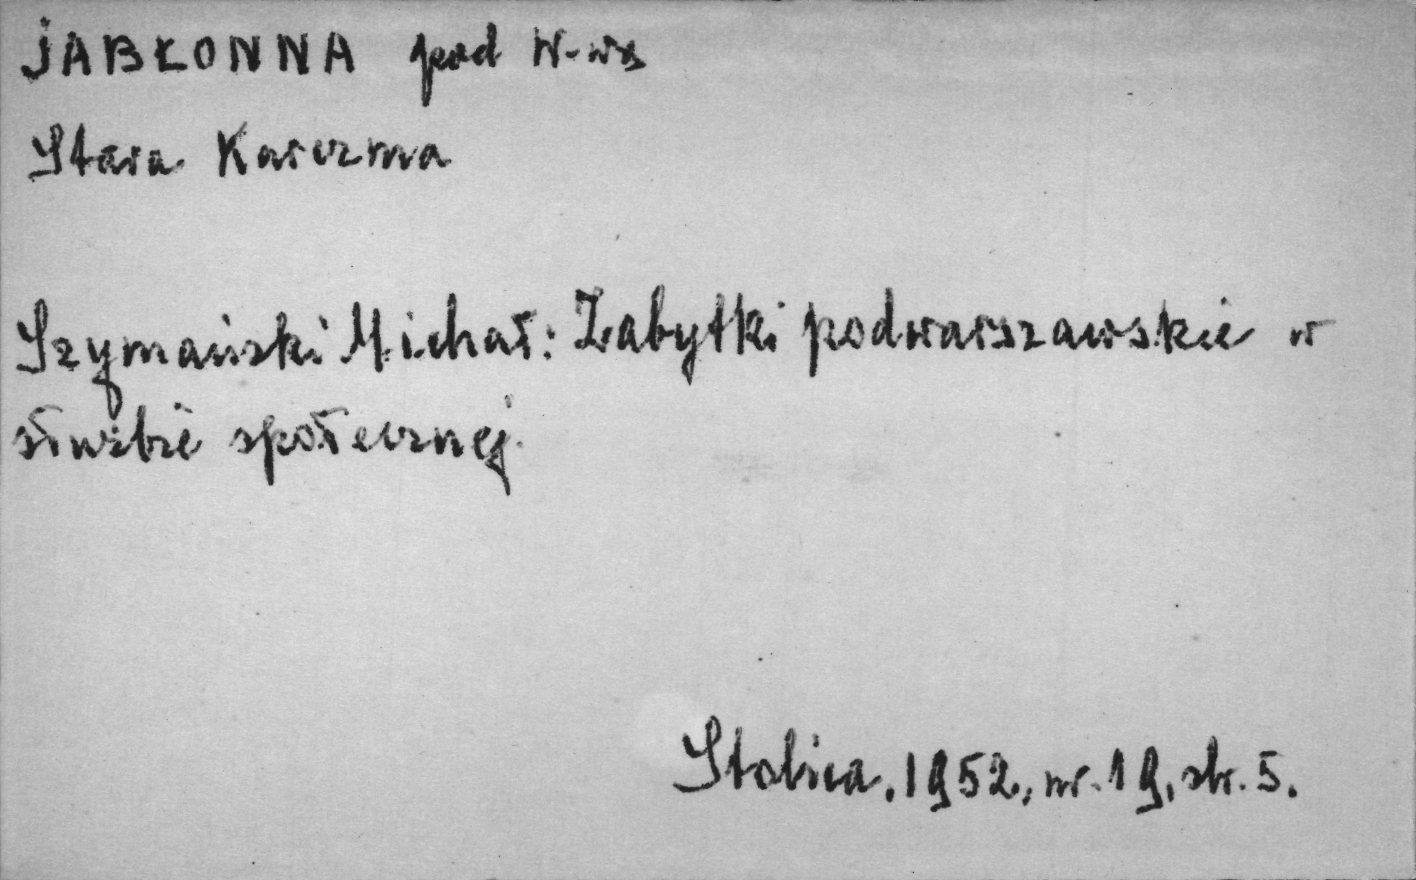 JABŁONNA pod W-wą
Stara Karczma
Szymański Michał: Zabytki podwarszawskie w
służbie społecznej.
Stolica, 1952, nr. 19, str. 5.